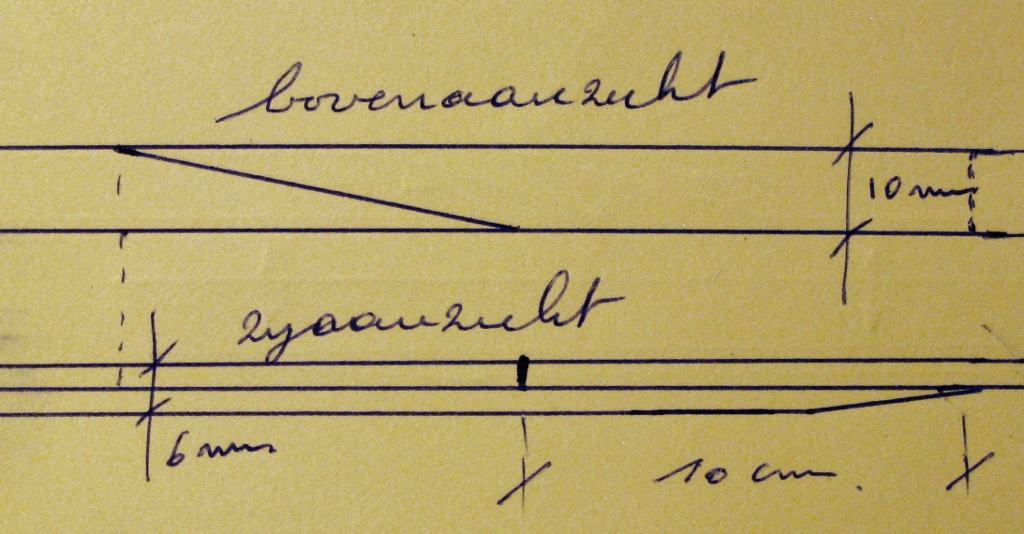 bovenaanzicht
10 mm
zijaanzicht
6 mm
10 cm.